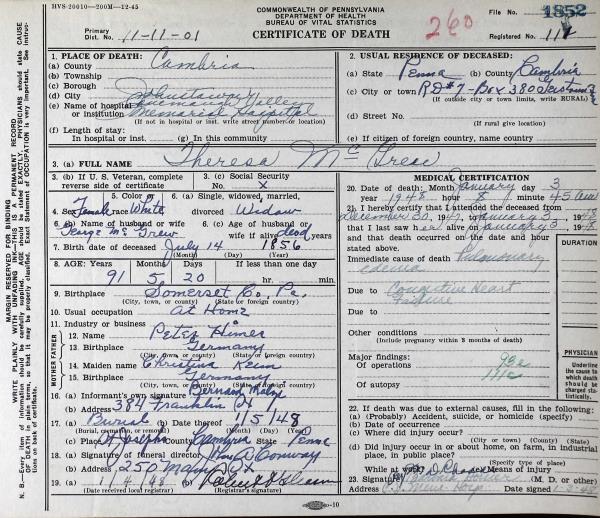 HVS-20010—200M—12-45
COMMONWEALTH OF PENNSYLVANIA
DEPARTMENT OF HEALTH
BUREAU OF VITAL STATISTICS
CERTIFICATE OF DEATH
Primary Dist. No. 11-11-01
260
File No. 1852
Registered No. 111
1. PLACE OF DEATH:
(a) County Cambria
(b) Township
(c) Borough
(d) City Johnstown
(e) Name of hospital or institution Conemaugh Valley Memorial Hospital
(If not in hospital or inst. write street number or location)
(f) Length of stay:
In hospital or inst. (g) In this community
2. USUAL RESIDENCE OF DECEASED:
(a) State Penna (b) County Cambria
(c) City or town RD#7-Box 380
(If outside city or town limits, write RURAL)
(d) Street No.
(If rural give location)
(e) If citizen of foreign country, name country
3. (a) FULL NAME Theresa
3. (b) If U. S. Veteran, complete reverse side of certificate
3. (c) Social Security No. X
4. Sex Female
5. Color or race White
6. (a) Single, widowed, married, divorced Widow
6. (b) Name of husband or wife
6. (c) Age of husband or wife if alive dead years
7. Birth date of deceased July 14 1856
(Month) (Day) (Year)
8. AGE: Years Months Days If less than one day
91 5 20 hr. min.
9. Birthplace Somerset Co, Pa.
(City, town, or county) (State or foreign country)
10. Usual occupation At Home
11. Industry or business
FATHER
12. Name Peter Himer
13. Birthplace Germany
(City, town, or county) (State or foreign country)
MOTHER
14. Maiden name Christina Keim
15. Birthplace Germany
(City, town, or county) (State or foreign country)
16. (a) Informant's own signature Bernard
(b) Address 384 Franklin St
17. (a) Burial (b) Date thereof 1/5/48
(Burial, cremation, or removal) (Month) (Day) (Year)
(c) Place St Josephs Cambria State Penna
18. (a) Signature of funeral director John A Conway
(b) Address 250 Main St
19. (a) 1/4/48 (b)
(Date received local registrar) (Registrar's signature)
MEDICAL CERTIFICATION
20. Date of death: Month January day 3
year 1948 hour 8 minute 45 AM
21. I hereby certify that I attended the deceased from
December 30, 1947, to January 3, 1948
that I last saw her alive on January 3, 1948
and that death occurred on the date and hour stated above.
DURATION
Immediate cause of death Pulmonary
edema
Due to Congestive Heart
Failure
Due to
Other conditions
(Include pregnancy within 3 months of death)
Major findings:
Of operations
Of autopsy
PHYSICIAN
Underline the cause to which death should be charged statistically.
22. If death was due to external causes, fill in the following:
(a) (Probably) Accident, suicide, or homicide (specify)
(b) Date of occurrence
(c) Where did injury occur?
(City or town) (County) (State)
(d) Did injury occur in or about home, on farm, in industrial place, in public place?
(Specify type of place)
While at work? (e) Means of injury
23. Signature (M. D. or other)
Address Date signed 1-3-48
MARGIN RESERVED FOR BINDING
WRITE PLAINLY WITH UNFADING INK—THIS IS A PERMANENT RECORD